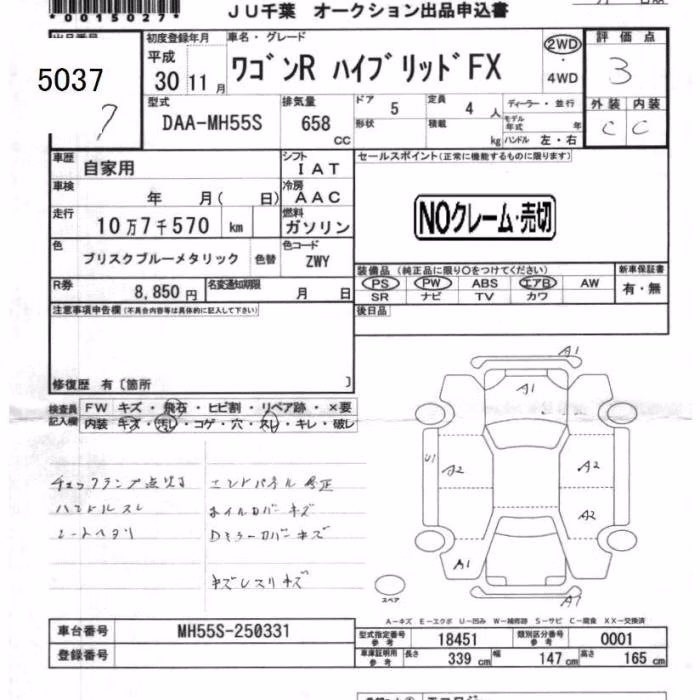 *0015027*
JU千葉 オークション出品申込書
出品番号
5037
7
初度登録年月
平成
30 11月
車名・グレード
ワゴンR ハイブリッドFX
2WD
・
4WD
評価点
3
外装 内装
C C
型式
DAA-MH55S
排気量
658
cc
ドア
5
定員
4 人
形状
積載
kg
ディーラー・並行
モデル年式 年
ハンドル 左・右
車歴
自家用
シフト
IAT
車検
年 月( 日)
冷房
AAC
走行
10万7千570 km
燃料
ガソリン
色
ブリスクブルーメタリック
色替
色コード
ZWY
R券
8,850円
名変通知期限
月 日
セールスポイント(正常に機能するものに限ります)
NOクレーム・売切
装備品(純正品に限り○をつけてください)
PS PW ABS エアB AW
SR ナビ TV カワ
新車保証書
有・無
後日品
注意事項申告欄(不具合内容等は具体的に記入して下さい)
修復歴 有〔箇所 〕
検査員
記入欄
FW キズ・飛石・ヒビ割・リペア跡・×要
内装 キズ・汚レ・コゲ・穴・スレ・キレ・破レ
チェックランプ点灯
ハンドルスレ
シートヘタリ
エンドパネル 修正
ホイルカバーキズ
Dミラーカバーキズ
キズレスリキズ
A1
A1
U1
A2
A2
A2
A1
A1
スペア
A-キズ E-エクボ U-凹み W-補修跡 S-サビ C-腐食 XX-交換済
車台番号
MH55S-250331
登録番号
型式指定番号
参考
18451
類別区分番号
参考
0001
車庫証明用
参考
長さ
339 cm
幅
147 cm
高さ
165 cm